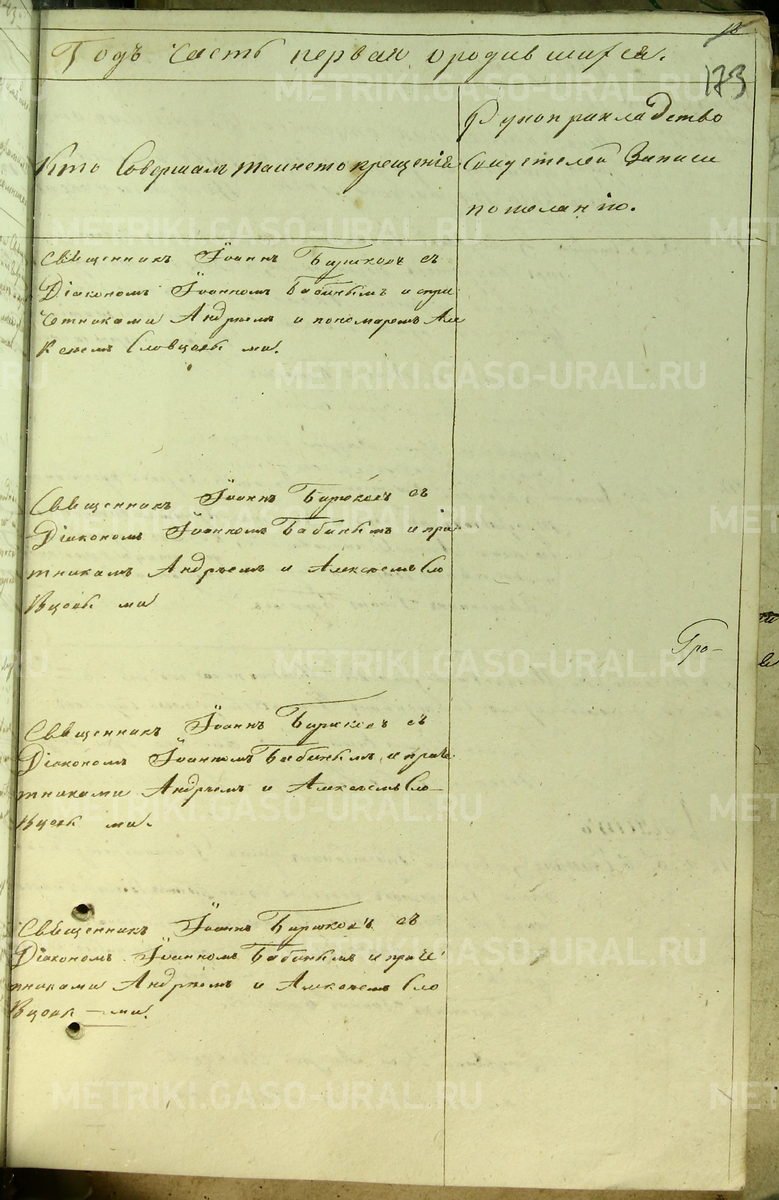 18
173
Годъ часть первая о родившихся.
Кто Совершалъ таинсто крещенія
Рукоприкладство
Свидетелей Записи
пожеланію.
Священникъ Іоаннъ Бирюковъ съ
Діакономъ Іоанномъ Бабинымъ и при
четниками Андреемъ и пономаремъ Але
ксеемъ Словцовы ми.
Священникъ Іоаннъ Бирюковъ съ
Діакономъ Іоанномъ Бабинымъ и при
тникамъ Андреемъ и Алексеемъ Сло
вцовы ми
Гро-
Священникъ Іоаннъ Бирюковъ съ
Діакономъ Іоанномъ Бабинымъ и приче
тниками Андреемъ и Алексеемъ Сло-
вцовы ми.
Священникъ Іоаннъ Бирюковъ съ
Діакономъ Іоанномъ Бабинымъ и приче
тниками Андреемъ и Алексеемъ Сло
вцовы — ми.
METRIKI.GASO-URAL.RU